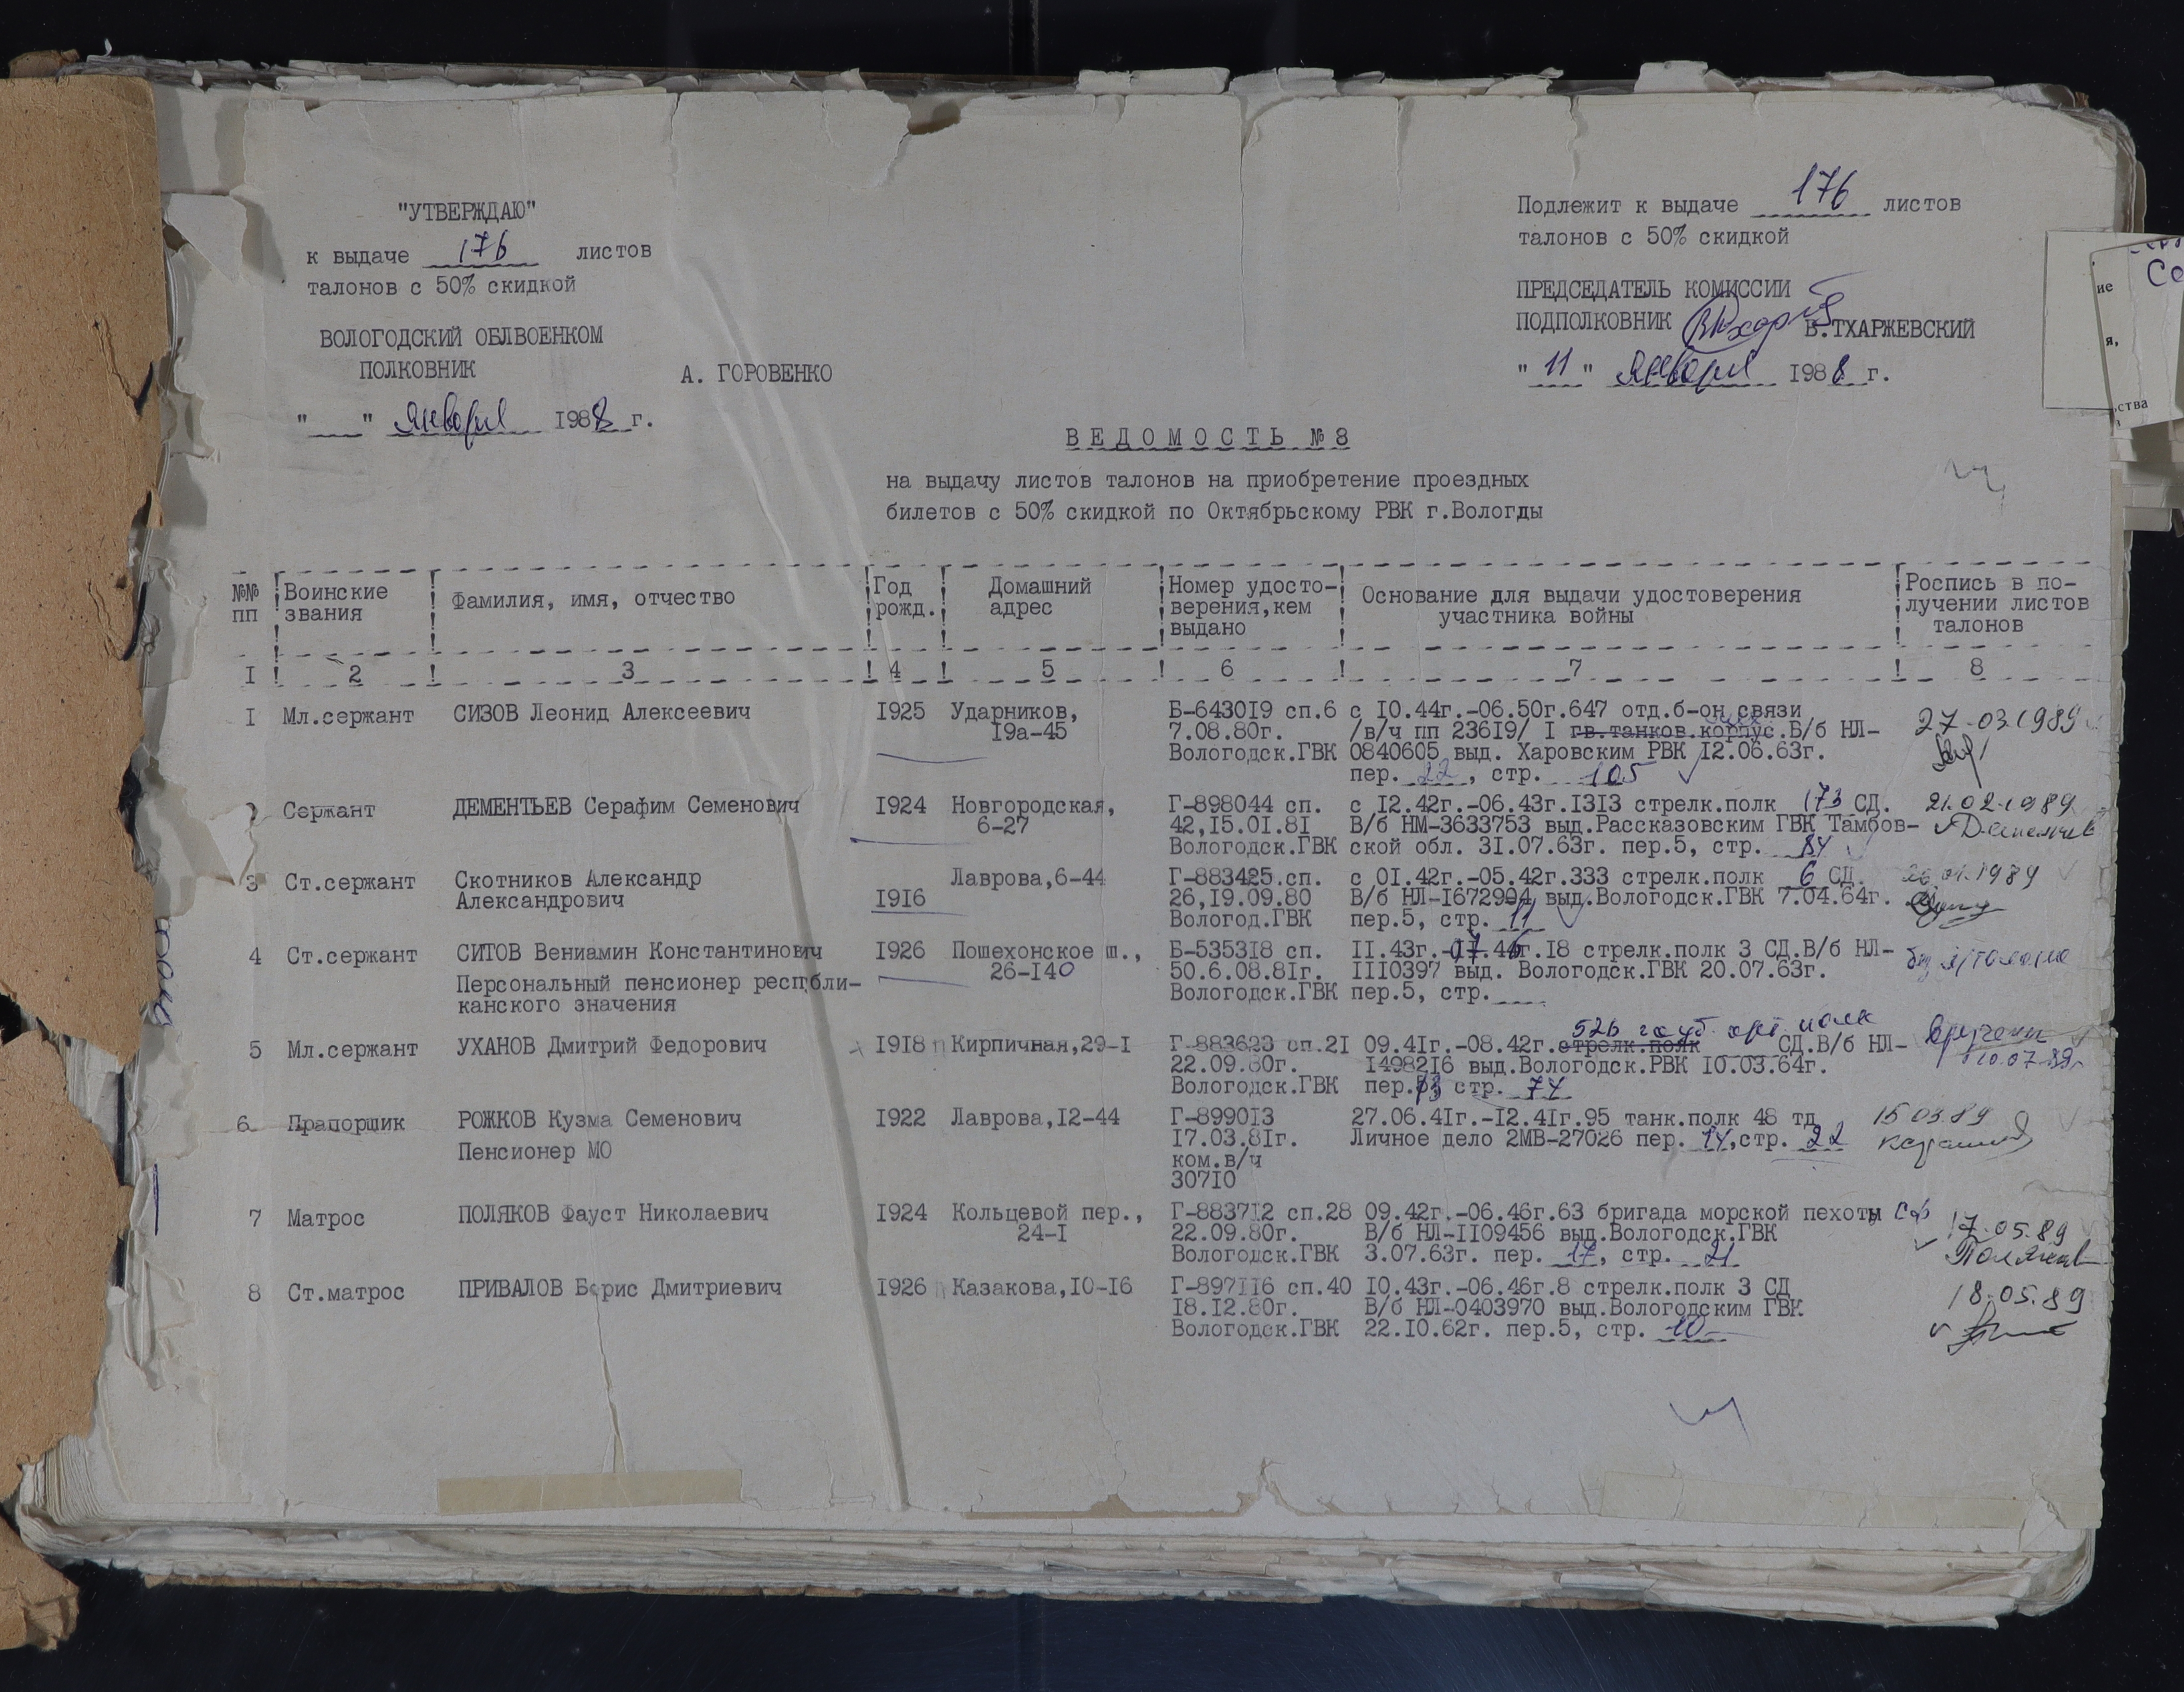 "УТВЕРЖДАЮ"
к выдаче 176 листов
талонов с 50% скидкой
ВОЛОГОДСКИЙ ОБЛВОЕНКОМ
ПОЛКОВНИК А. ГОРОВЕНКО
"___" января 1988 г.
Подлежит к выдаче 176 листов
талонов с 50% скидкой
ПРЕДСЕДАТЕЛЬ КОМИССИИ
ПОДПОЛКОВНИК В.ТХАРЖЕВСКИЙ
"11" января 1988 г.
ВЕДОМОСТЬ №8
на выдачу листов талонов на приобретение проездных
билетов с 50% скидкой по Октябрьскому РВК г.Вологды
№№ пп
Воинские звания
Фамилия, имя, отчество
Год рожд.
Домашний адрес
Номер удосто-
верения,кем
выдано
Основание для выдачи удостоверения
участника войны
Роспись в по-
лучении листов
талонов
1 2 3 4 5 6 7 8
1 Мл.сержант СИЗОВ Леонид Алексеевич 1925 Ударников, Б-643019 сп.6 с 10.44г.-06.50г.647 отд.б-он связи 27.03.1989
19а-45 7.08.80г. /в/ч пп 23619/ 1 гв.танков.корпус.Б/б НЛ-
Вологодск.ГВК 0840605 выд. Харовским РВК 12.06.63г.
пер. 22, стр. 105
2 Сержант ДЕМЕНТЬЕВ Серафим Семенович 1924 Новгородская, Г-898044 сп. с 12.42г.-06.43г.1313 стрелк.полк 173 СД. 21.02.1989
6-27 42,15.01.81 В/б НМ-3633753 выд.Рассказовским ГВК Тамбов-
Вологодск.ГВК ской обл. 31.07.63г. пер.5, стр. 84
3 Ст.сержант Скотников Александр Лаврова,6-44 Г-883425.сп. с 01.42г.-05.42г.333 стрелк.полк 6 СД. 26.01.1989
Александрович 1916 26,19.09.80 В/б НЛ-1672994 выд.Вологодск.ГВК 7.04.64г.
Вологод.ГВК пер.5, стр. 11
4 Ст.сержант СИТОВ Вениамин Константинович 1926 Пошехонское ш., Б-535318 сп. 11.43г.-07.46г.18 стрелк.полк 3 СД.В/б НЛ-
26-140 50.6.08.81г. 1110397 выд. Вологодск.ГВК 20.07.63г.
Персональный пенсионер республи-
канского значения Вологодск.ГВК пер.5, стр.
526 гауб. арт. полк
5 Мл.сержант УХАНОВ Дмитрий Федорович 1918 Кирпичная,29-1 Г-883623 сп.21 09.41г.-08.42г.стрелк.полк СД.В/б НЛ- вручены
22.09.80г. 1498216 выд.Вологодск.РВК 10.03.64г. 10.07.89г
Вологодск.ГВК пер. стр. 74
6 Прапорщик РОЖКОВ Кузма Семенович 1922 Лаврова,12-44 Г-899013 27.06.41г.-12.41г.95 танк.полк 48 тд 15.03.89
17.03.81г. Личное дело 2МВ-27026 пер. 14,стр. 22
Пенсионер МО ком.в/ч
30710
7 Матрос ПОЛЯКОВ Фауст Николаевич 1924 Кольцевой пер., Г-883712 сп.28 09.42г.-06.46г.63 бригада морской пехоты СФ 17.05.89
24-1 22.09.80г. В/б НЛ-1109456 выд.Вологодск.ГВК
Вологодск.ГВК 3.07.63г. пер. 17, стр. 21 Поляков
8 Ст.матрос ПРИВАЛОВ Борис Дмитриевич 1926 Казакова,10-16 Г-897116 сп.40 10.43г.-06.46г.8 стрелк.полк 3 СД 18.05.89
18.12.80г. В/б НЛ-0403970 выд.Вологодским ГВК
Вологодск.ГВК 22.10.62г. пер.5, стр. 10